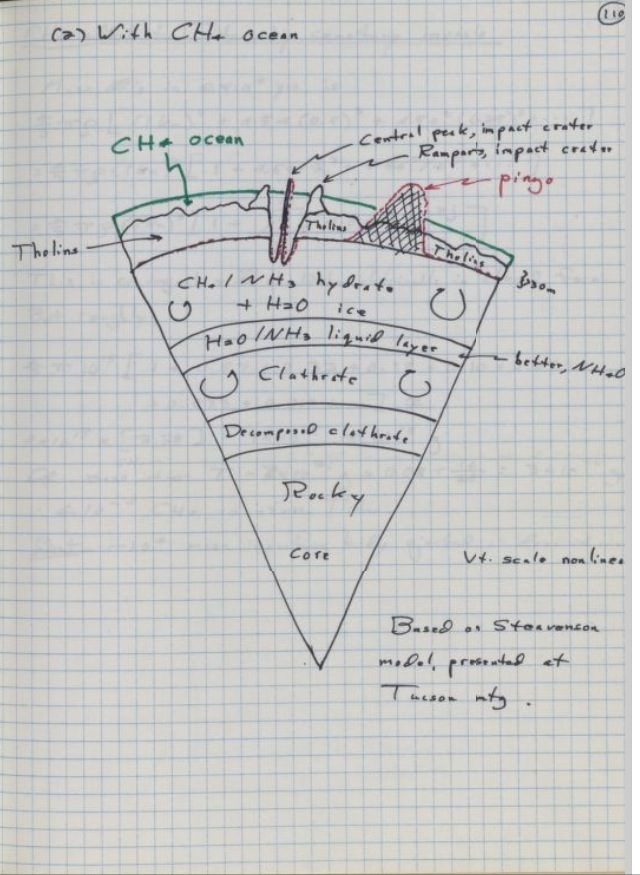 110
(a) With CH4 ocean
CH4 ocean
Central peak, impact crater
Ramparts, impact crater
pingo
Tholins
Tholins
Tholins
CH4 / NH3 hydrate
+ H2O ice
H2O / NH3 liquid layer
better, NH4O
Clathrate
Decomposed clathrate
Rocky
Core
Vt. scale nonlinea
Based on Steavenson
model, presented at
Tucson mtg.